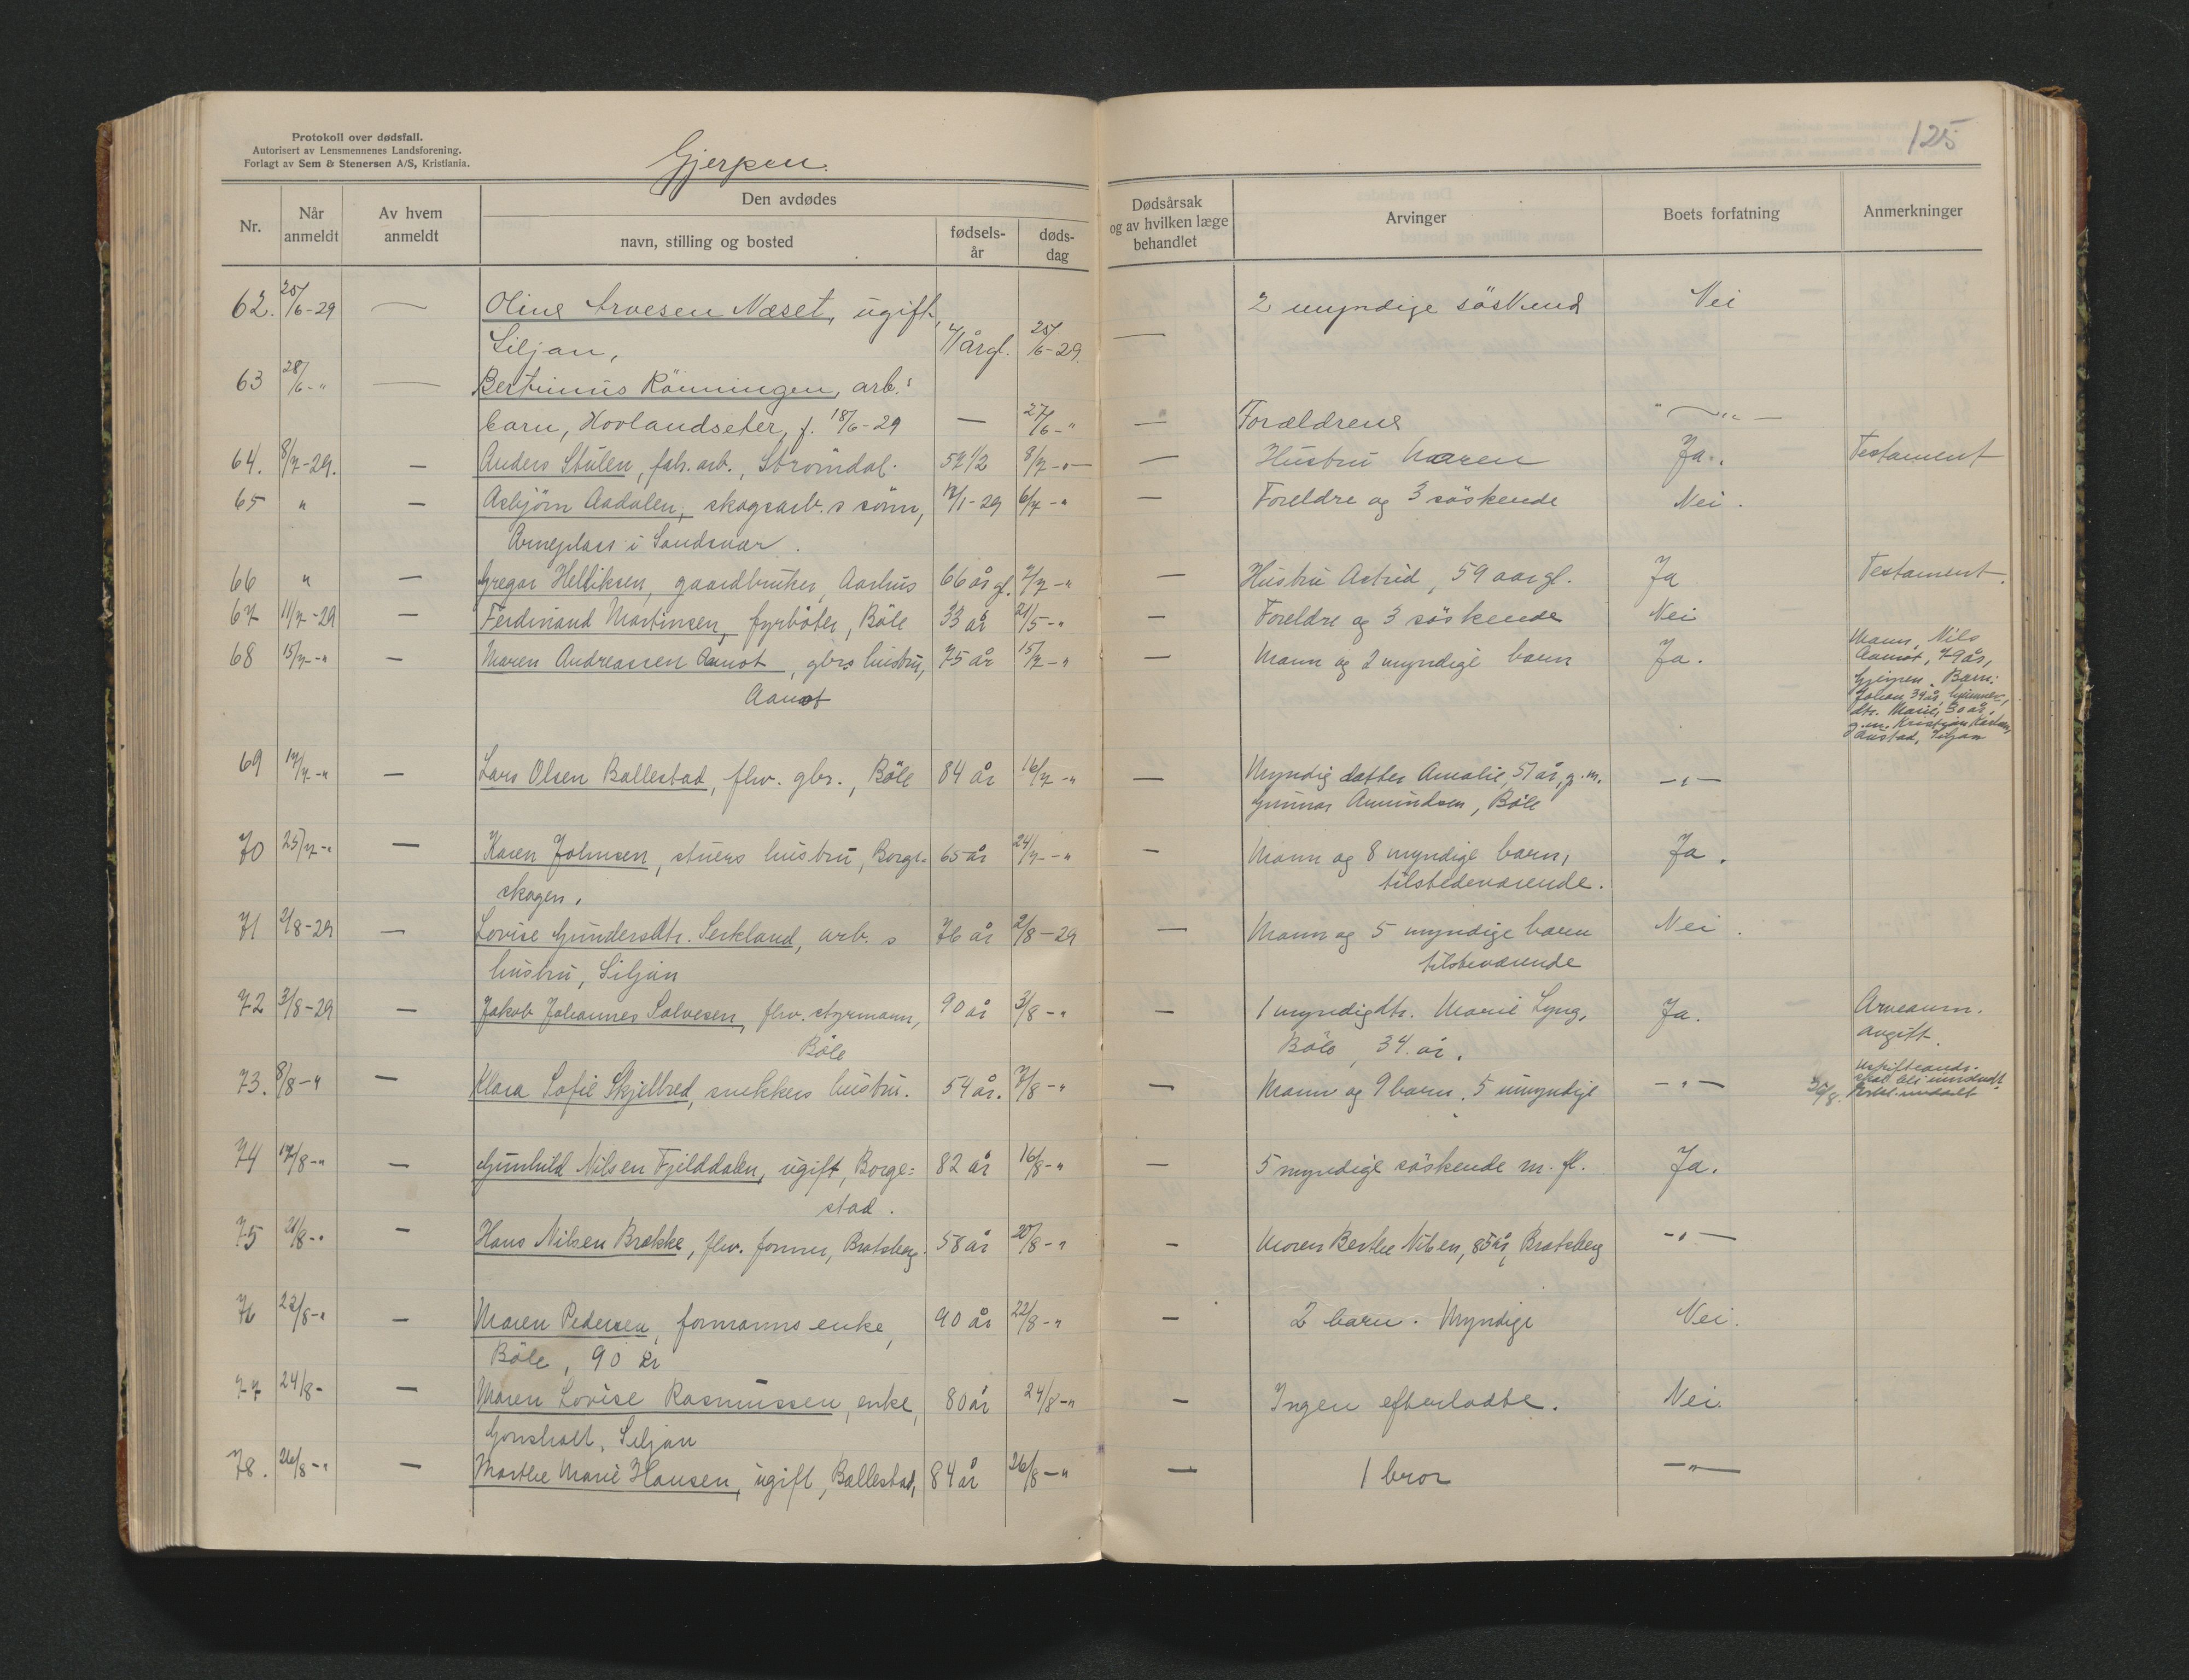 Protokoll over dødsfall.
Autorisert av Lensmennenes Landsforening.
Forlagt av Sem & Stenersen A/S, Kristiania.
Gjerpen.
125
Nr.
Når anmeldt
Av hvem anmeldt
Den avdødes
navn, stilling og bosted
fødsels-år
døds-dag
Dødsårsak og av hvilken læge behandlet
Arvinger
Boets forfatning
Anmerkninger
62. 25/6-29 — Oline Arvesen Næset, ugift, 2 myndige söskend Nei
Siljan, 71 år gl. 25/6-29. —
63 28/6-" — Bertinius Rönningen, arb.s
barn, Hovlandseter, f. 18/6-29 — 27/6-" — Forældrene —"—
64. 8/7-29. — Anders Stulen, fab. arb., Strömdal. 52 1/2 8/7-"— — Hustru Maren Ja. Testament
65 " — Asbjörn Aadalen, skogsarb. s sönn, 12/1-29 6/7-" — Foreldre og 3 söskende Nei.
Arneplass i Sandsvær.
66 " — Gregar Helliksen, gaardbruker, Aarhus 66 år gl. 7/7-" — Hustru Astrid, 59 aar gl. Ja Testament.
67 11/7-29 — Ferdinand Martinsen, fyrböter, Böle 33 år 21/5-" — Foreldre og 3 söskende Nei
68 15/7-" — Maren Andreassen Aamot, gbrs hustru, 75 år 15/7-" — Mann og 2 myndige barn Ja. Mann, Nils
Aamot
Aamot, 79 år,
Gjerpen. Barn:
Johan 34 år,
dtr. Marie, 30 år,
g.m. Kristjan
Austad, Siljan
69 17/7-" — Lars Olsen Ballestad, fhv. gbr., Böle 84 år 16/7-" — Myndig datter Amalie, 57 år, g.m. —"—
Gunnar Amundsen, Böle
70 25/7-" — Karen Johnsen, stuers hustru, Borge- 65 år 24/7-" — Mann og 8 myndige barn, Ja.
skogen, tilstedeværende.
71 2/8-29 — Lovise Gundersdtr. Serkland, arb. s 76 år 2/8-29 — Mann og 5 myndige barn Nei.
hustru, Siljan tilsteværende
72 3/8-29 — Jakob Johannes Salvesen, fhv. styrmann, 90 år 3/8-" — 1 myndig dtr. Marie Lyng, Ja. Arveanm.
Böle Böle, 34 år. avgift.
73. 8/8-" — Klara Sofie Skjelbred, snekkers hustru. 54 år. 7/8-" — Mann og 9 barn. 5 umyndige —"—
74 17/8-" — Gunhild Nilsen Fjelddalen, ugift, Borge= 82 år 16/8-" — 5 myndige söskende m. fl. Ja.
stad.
75 21/8-" — Hans Nilsen Brække, fhv. formn, Bratsberg 58 år 20/8-" — Moren Berthe Nilsen, 85 år, Bratsberg —"—
76 22/8-" — Maren Pedersen, formanns enke, 90 år 22/8-" — 2 barn. Myndige Nei.
Böle, 90 år
77 24/8- — Maren Lovise Rasmussen, enke, 80 år 24/8-" — Ingen efterladte. Nei.
Gonsholt, Siljan
78. 26/8-" — Marthe Marie Hansen, ugift, Ballestad, 84 år 26/8-" — 1 bror —"—